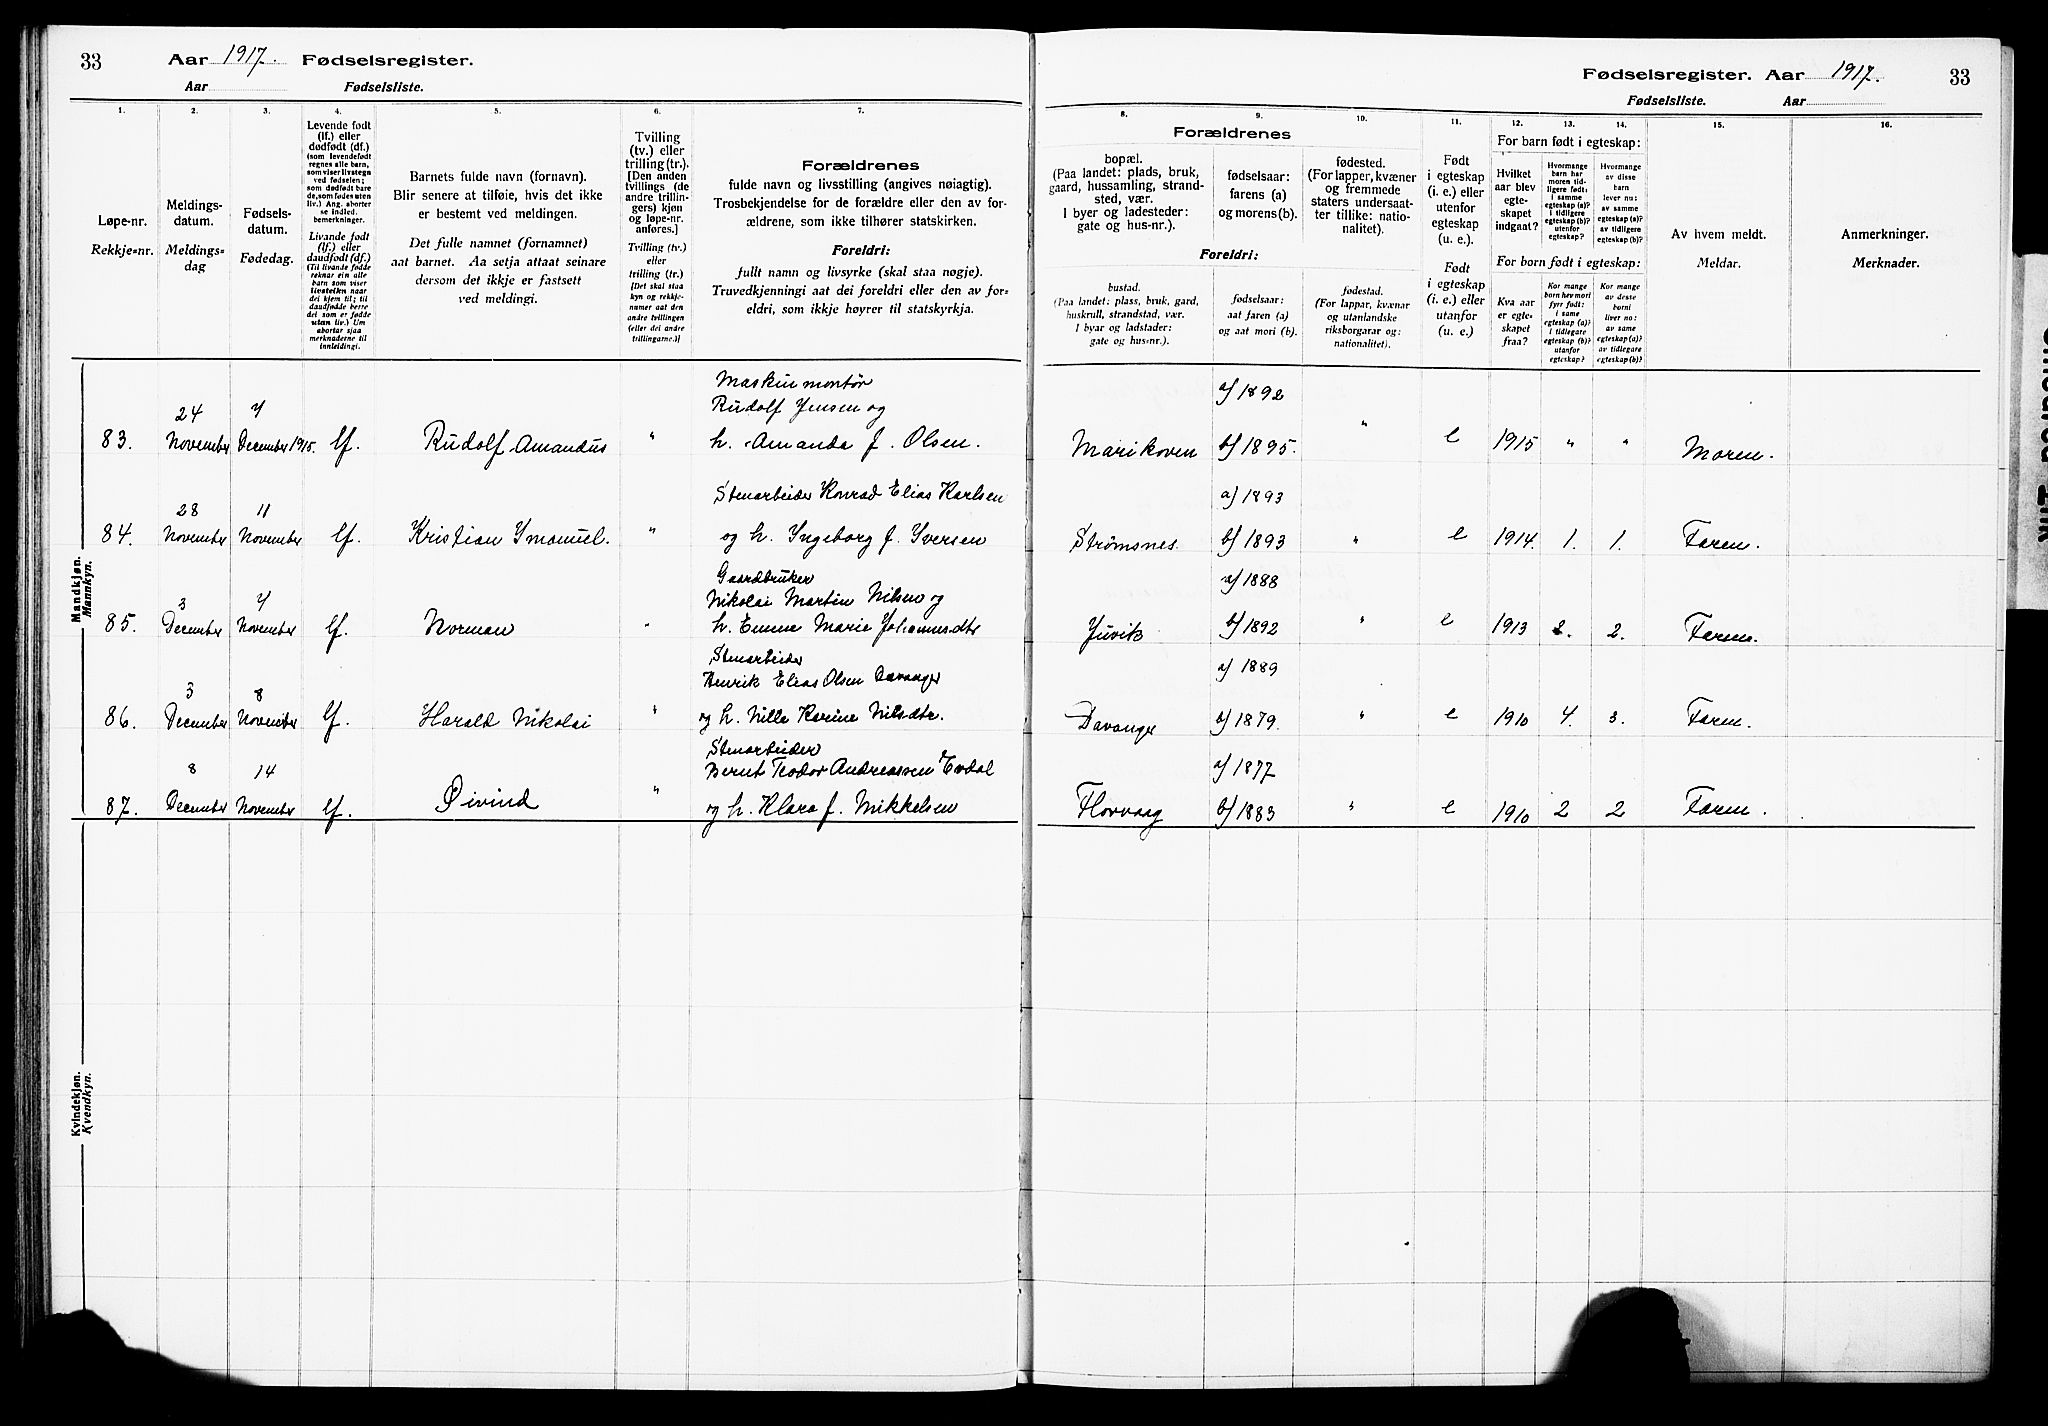 33 Aar 1917. Fødselsregister.
Aar Fødselsliste.
Fødselsregister. Aar 1917. 33
Fødselsliste. Aar
1. 2. 3. 4. 5. 6. 7.
Løpe-nr.
Rekkje=nr.
Meldings-
datum.
Meldings=
dag
Fødsels-
datum.
Fødedag.
Levende født
(lf.) eller
dødfødt (df.)
(som levendefødt
regnes alle barn,
som viser livstegn
ved fødselen;
som dødfødt bare
de, som fødes uten
liv.) Ang. aborter
se indled.
bemerkninger.
Livande født
(lf.) eller
daudfødt (df.)
(Til livande fødde
reknar ein alle
barn som viser
livsteikn naar
dei kjem til; til
daudfødde berre
dei som er fødde
utan liv.) Um
abortar sjaa
merknaderne til
innleidingi.
Barnets fulde navn (fornavn).
Blir senere at tilføie, hvis det ikke
er bestemt ved meldingen.
Det fulle namnet (fornamnet)
aat barnet. Aa setja attaat seinare
dersom det ikkje er fastsett
ved meldingi.
Tvilling
(tv.) eller
trilling (tr.).
[Den anden
tvillings (de
andre trillin-
gers) kjøn
og løpe-nr.
anføres.]
Tvilling (tv.)
eller
trilling (tr.)
[Det skal staa
kyn og rekkje=
numer aat den
andre tvillingen
(eller dei andre
trillingarne.)]
Forældrenes
fulde navn og livsstilling (angives nøiagtig).
Trosbekjendelse for de forældre eller den av for-
ældrene, som ikke tilhører statskirken.
Foreldri:
fullt namn og livsyrke (skal staa nøgje).
Truvedkjenningi aat dei foreldri eller den av for=
eldri, som ikkje høyrer til statskyrkja.
8. 9. 10. 11. 12. 13. 14. 15. 16.
Forældrenes
bopæl.
(Paa landet: plads, bruk,
gaard, hussamling, strand-
sted, vær.
I byer og ladesteder:
gate og hus-nr.).
fødselsaar:
farens (a)
og morens (b).
fødested.
(For lapper, kvæner
og fremmede
staters undersaat-
ter tillike: natio-
nalitet).
Foreldri:
bustad.
(Paa landet: plass, bruk, gard,
huskrull, strandstad, vær.
I byar og ladstader:
gate og hus=nr.).
fødselsaar:
aat faren (a)
og aat mori (b).
fødestad.
(For lappar, kvænar
og utanlandske
riksborgarar og:
nationalitet).
Født
i egteskap
(i. e.) eller
utenfor
egteskap
(u. e.).
Født
i egteskap
(i. e.) eller
utanfor
(u. e.)
For barn født i egteskap:
Hvilket
aar blev
egte-
skapet
indgaat?
Hvormange
barn har
moren tid-
ligere født:
i samme
egteskap (a)?
i tidligere
egteskap (b)?
utenfor
egteskap?
Hvormange
av disse
barn
lever nu:
av samme
egteskap (a)?
av tidligere
egteskap (b)?
For born født i egteskap:
Kva aar
er egte=
skapet
fraa?
Kor mange
born hev mori
fyrr født:
i same
egteskap (a)?
i tidlegare
egteskap (b)?
utanfor
egteskap?
Kor mange
av desse
borni
liver no:
av same
egteskap (a)?
av tidlegare
egteskap (b)?
Av hvem meldt.
Meldar.
Anmerkninger.
Merknader.
Mandkjøn.
Mannkyn.
Maskinmontør
24 7 Rudolf Jensen og a/ 1892
83. November December 1915. lf. Rudolf Amandus " h. Amanda f. Olsen. Marikoven b/ 1895. " e 1915 " " Moren.
28 11 Stenarbeider Konrad Elias Karlsen a/ 1893
84. November November lf. Kristian Imanuel. " og h. Ingeborg f. Iversen Strømsnes. b/ 1893 " e 1914. 1. 1. Faren.
Gaardbruker a/ 1888
3 7 Nikolai Martin Nilsen og
85. December November lf. Norman " h. Emma Marie Johannesdtr Juvik b/ 1892 " e 1913 2. 2. Faren.
Stenarbeider a/ 1889
3 8 Henrik Elias Olsen Davanger
86. December November lf. Harald Nikolai " og h. Nilla Karine Nilsdtr. Davanger b/ 1879. " e 1910 4. 3. Faren.
Stenarbeider
8 14 Bernt Teodor Andreassen Evdal a/ 1877
87. December November lf. Øivind " og h. Klara f. Mikkelsen Florvaag b/ 1883 " e 1910 2 2 Faren.
Kvindekjøn.
Kvendkyn.